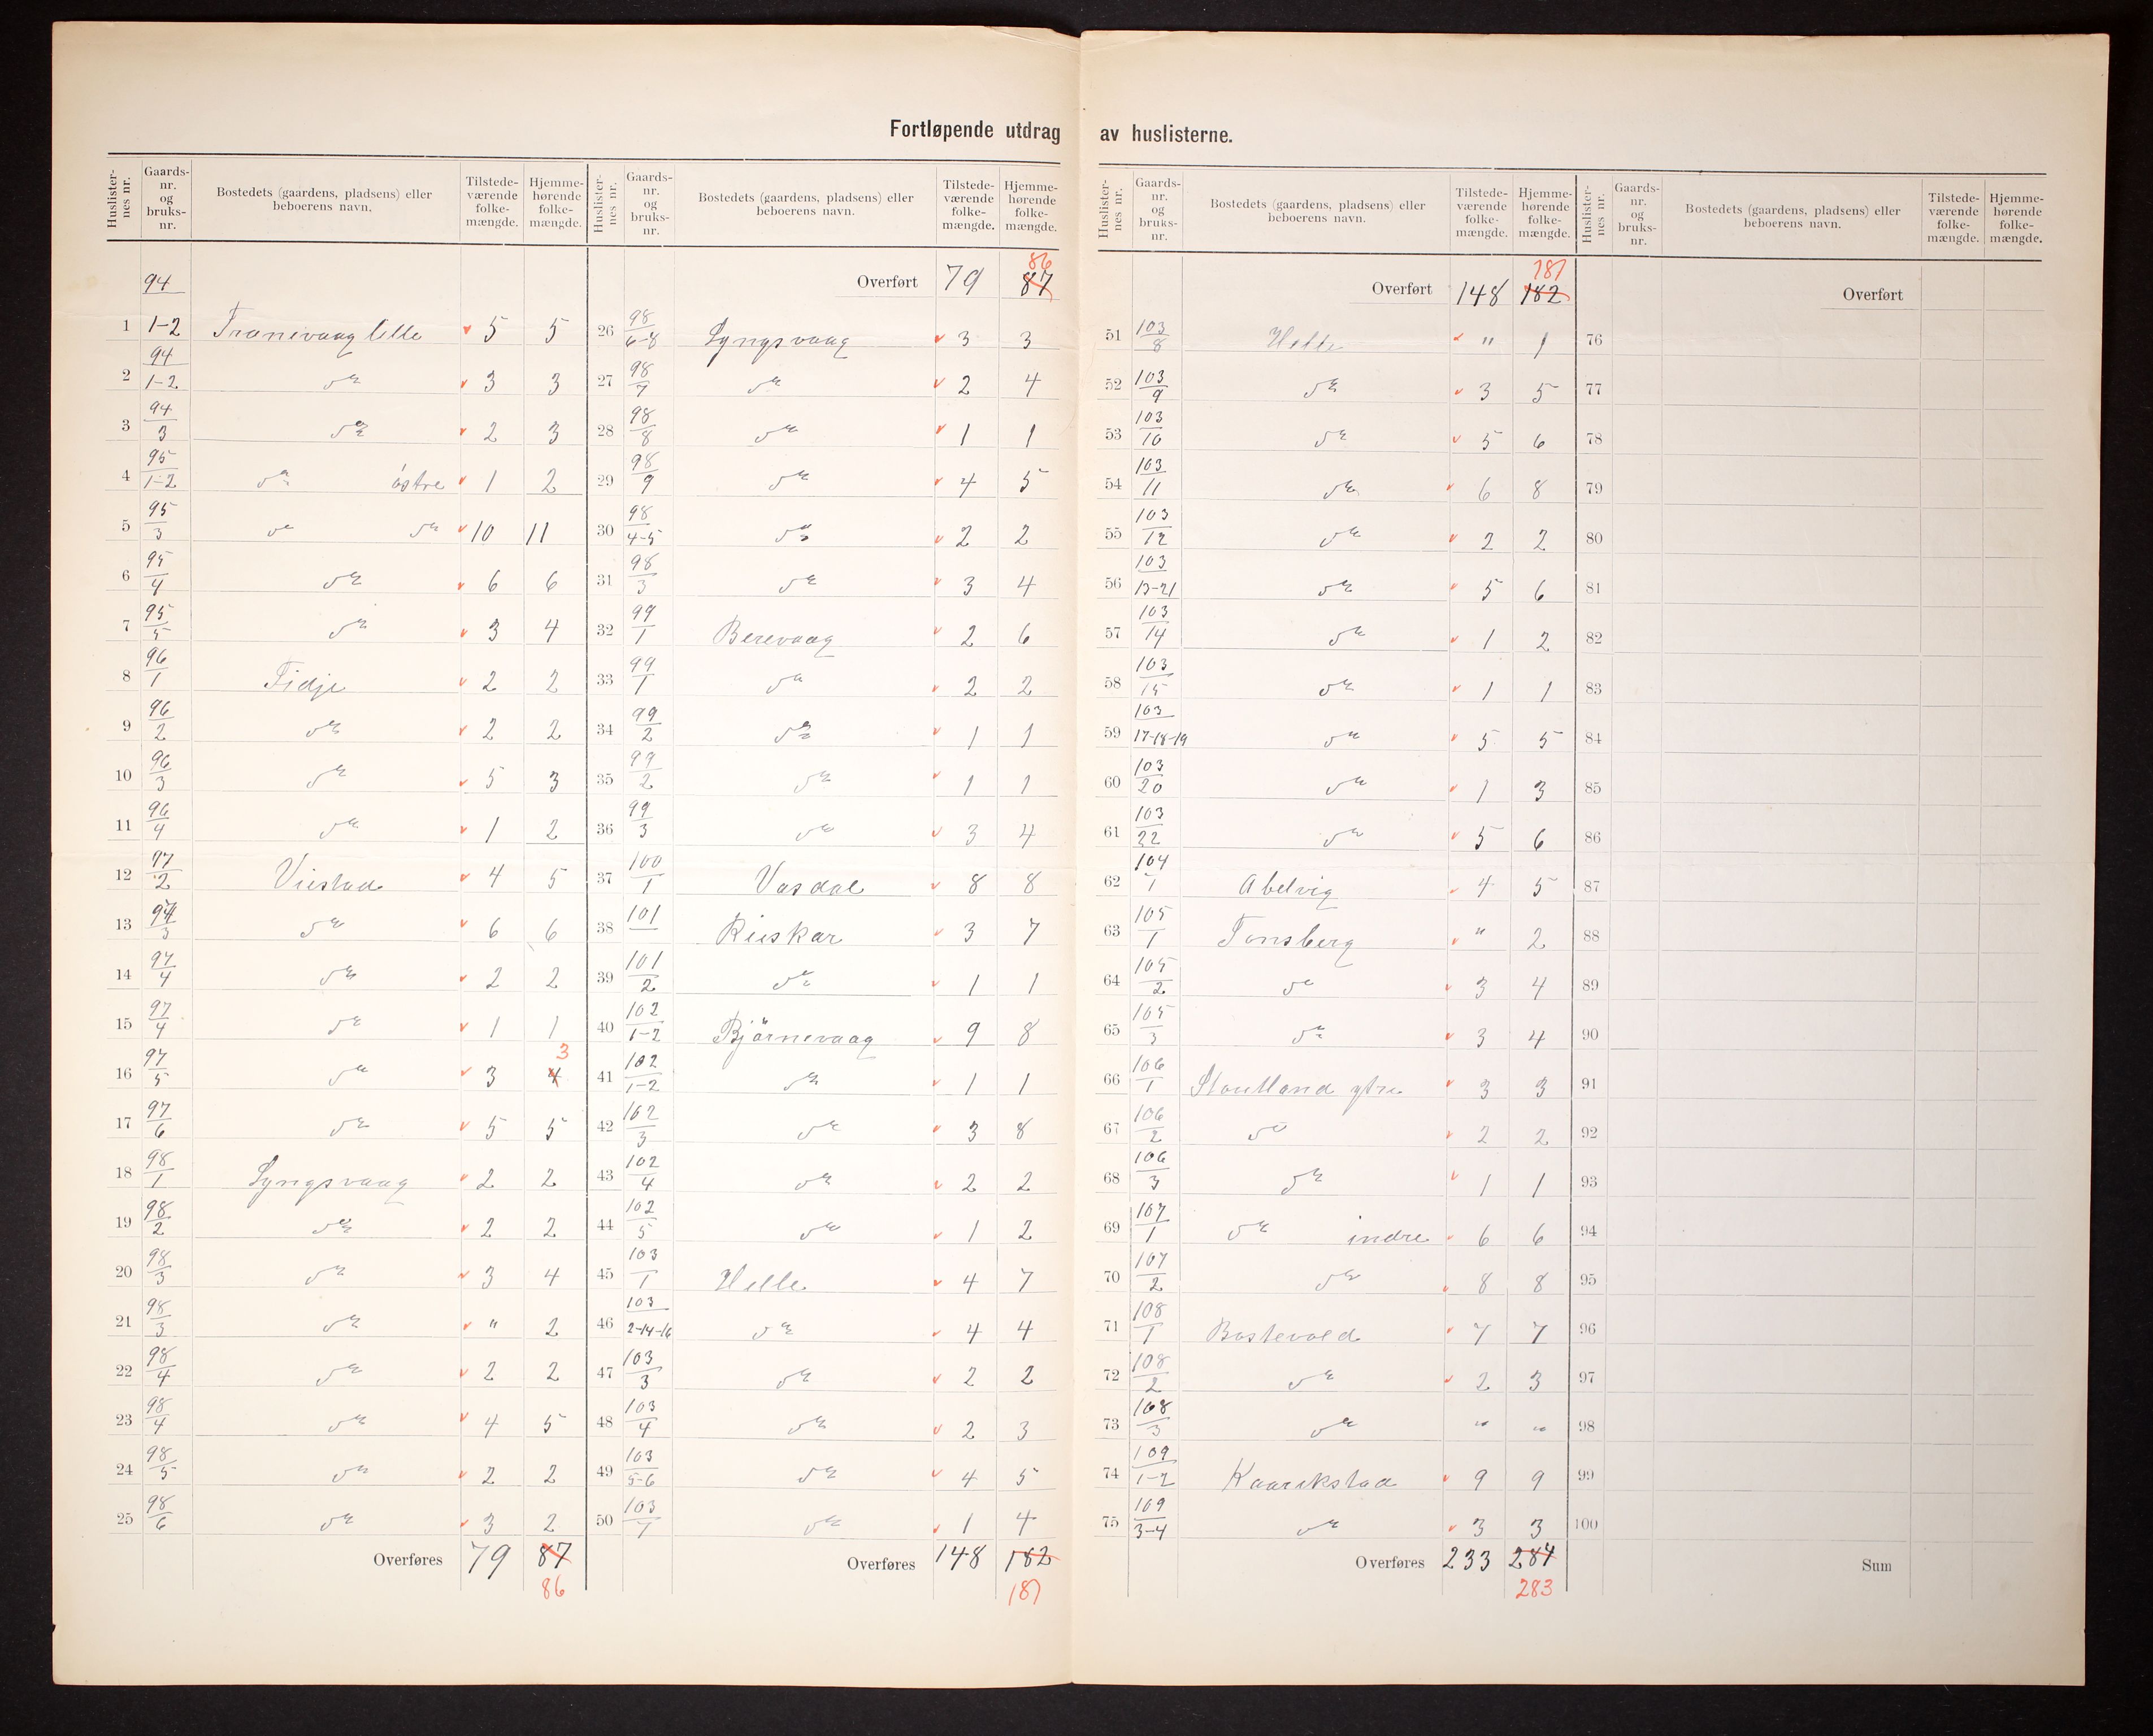 Fortløpende utdrag av huslisterne.
Huslister-nes nr. Gaards-nr. og bruks-nr. Bostedets (gaardens, pladsens) eller beboerens navn. Tilstede-værende folke-mængde. Hjemme-hørende folke-mængde.
1 94/1-2 Tranevaag lille 5 5
2 94/1-2 do 3 3
3 94/3 do 2 3
4 95/1-2 do östre 1 2
5 95/3 do do 10 11
6 95/4 do 6 6
7 95/5 do 3 4
8 96/1 Tidje 2 2
9 96/2 do 2 2
10 96/3 do 5 3
11 96/4 do 1 2
12 97/2 Viestad 4 5
13 97/3 do 6 6
14 97/4 do 2 2
15 97/4 do 1 1
16 97/5 do 3 4 3
17 97/6 do 5 5
18 98/1 Lyngsvaag 2 2
19 98/2 do 2 2
20 98/3 do 3 4
21 98/3 do " 2
22 98/4 do 2 2
23 98/4 do 4 5
24 98/5 do 2 2
25 98/6 do 3 2
Overføres 79 87 86
Huslister-nes nr. Gaards-nr. og bruks-nr. Bostedets (gaardens, pladsens) eller beboerens navn. Tilstede-værende folke-mængde. Hjemme-hørende folke-mængde.
Overført 79 87 86
26 98/6-8 Lyngsvaag 3 3
27 98/7 do 2 4
28 98/8 do 1 1
29 98/9 do 4 5
30 98/4-5 do 2 2
31 98/3 do 3 4
32 99/1 Berevaag 2 6
33 99/1 do 2 2
34 99/2 do 1 1
35 99/2 do 1 1
36 99/3 do 3 4
37 100/1 Vasdal 8 8
38 101 Rieskar 3 7
39 101/2 do 1 1
40 102/1-2 Björnevaag 9 8
41 102/1-2 do 1 1
42 102/3 do 3 8
43 102/4 do 2 2
44 102/5 do 1 2
45 103/1 Helle 4 7
46 103/2-14-16 do 4 4
47 103/3 do 2 2
48 103/4 do 2 3
49 103/5-6 do 4 5
50 103/7 do 1 4
Overføres 148 182 181
Huslister-nes nr. Gaards-nr. og bruks-nr. Bostedets (gaardens, pladsens) eller beboerens navn. Tilstede-værende folke-mængde. Hjemme-hørende folke-mængde.
Overført 148 182 181
51 103/8 Helle " 1
52 103/9 do 3 5
53 103/10 do 5 6
54 103/11 do 6 8
55 103/12 do 2 2
56 103/13-21 do 5 6
57 103/14 do 1 2
58 103/15 do 1 1
59 103/17-18-19 do 5 5
60 103/20 do 1 3
61 103/22 do 5 6
62 104/1 Abelvig 4 5
63 105/1 Tonsberg " 2
64 105/2 do 3 4
65 105/3 do 3 4
66 106/1 Stoutland ytre 3 3
67 106/2 do 2 2
68 106/3 do 1 1
69 107/1 do indre 6 6
70 107/2 do 8 8
71 108/1 Bostevold 7 7
72 108/2 do 2 3
73 108/3 do " "
74 109/1-2 Kaarikstad 9 9
75 109/3-4 do 3 3
Overføres 233 284 283
Huslister-nes nr. Gaards-nr. og bruks-nr. Bostedets (gaardens, pladsens) eller beboerens navn. Tilstede-værende folke-mængde. Hjemme-hørende folke-mængde.
Overført
76
77
78
79
80
81
82
83
84
85
86
87
88
89
90
91
92
93
94
95
96
97
98
99
100
Sum